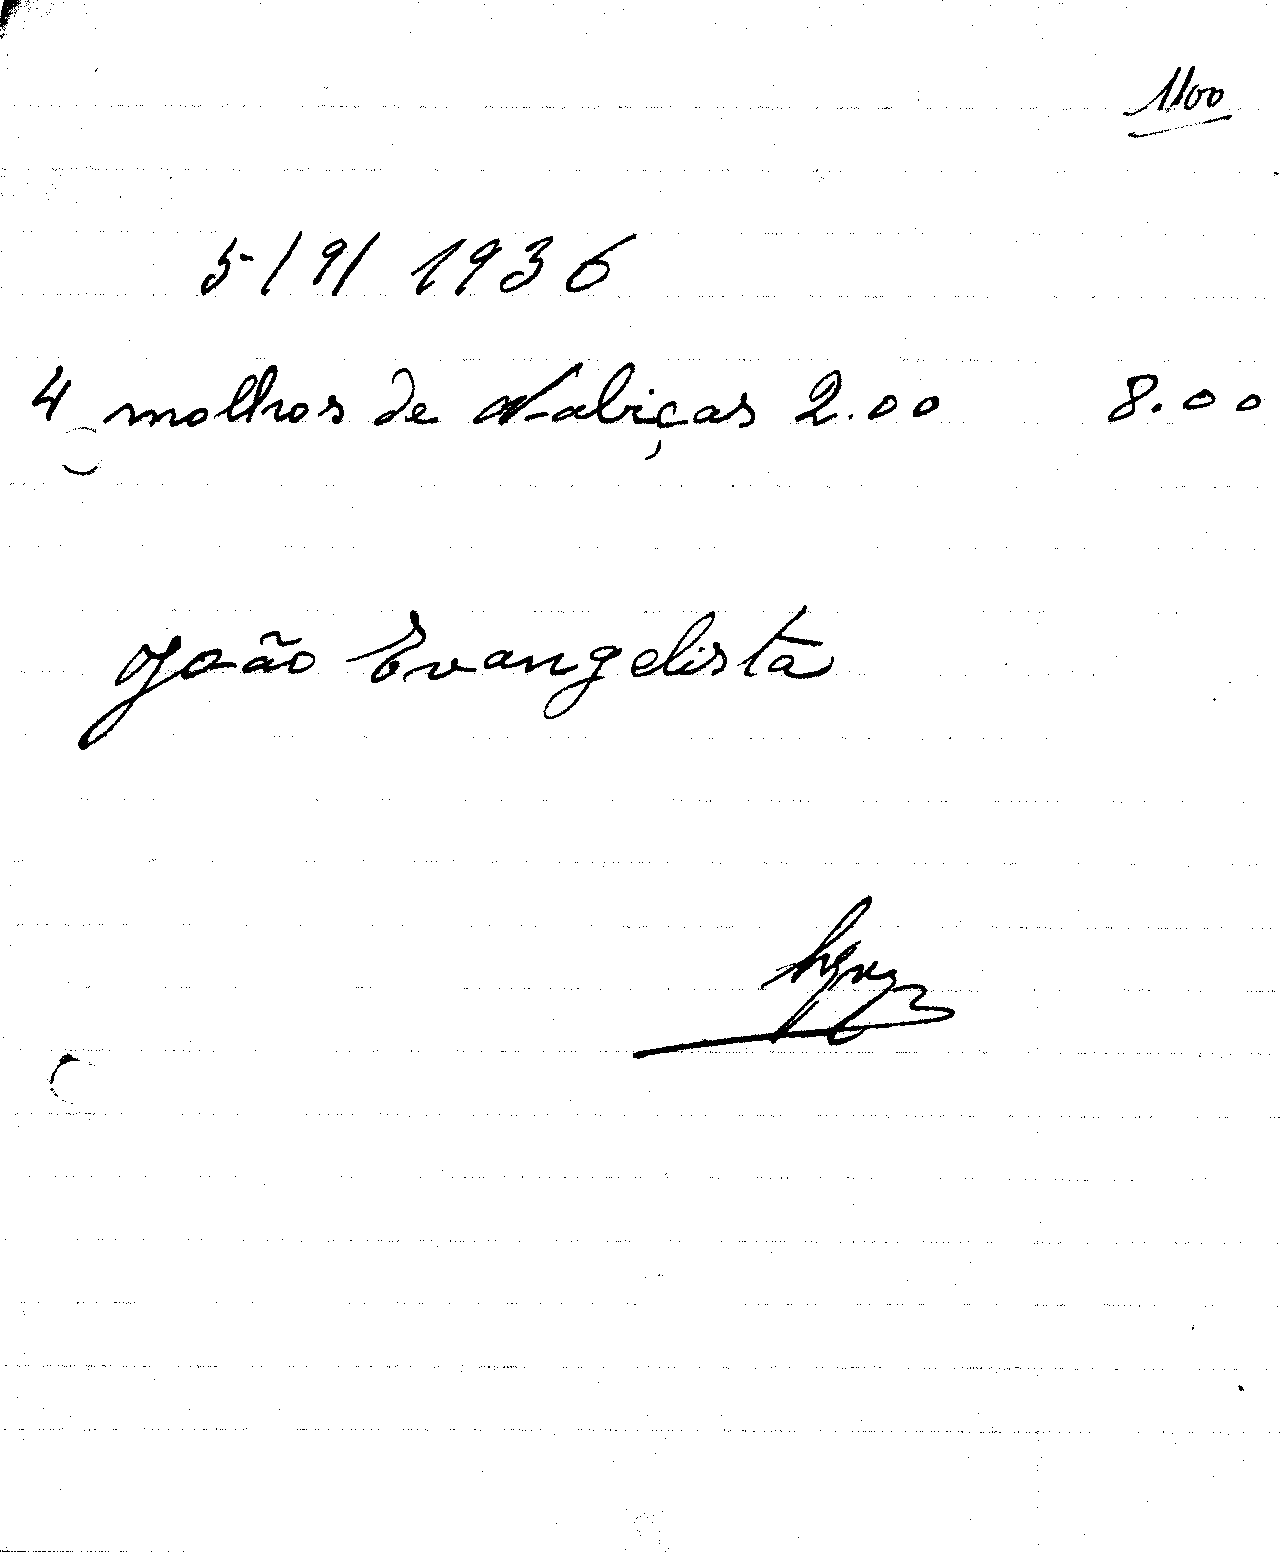 1100
5/9/1936
4 molhos de Nabiças 2.00 8.00
João Evangelista